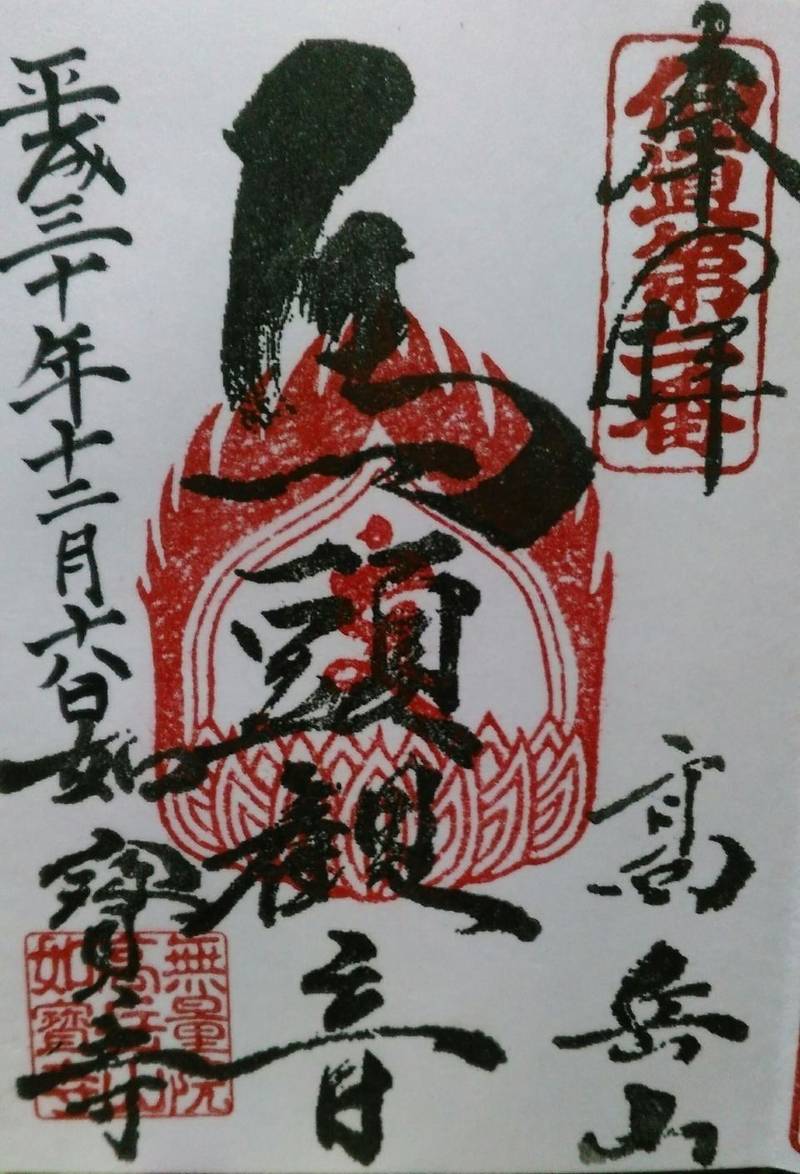 奉拝
仙道第番
高岳山
馬頭観音
平成三十年十二月六日
如寳寺
無量院
高岳山
如寳寺